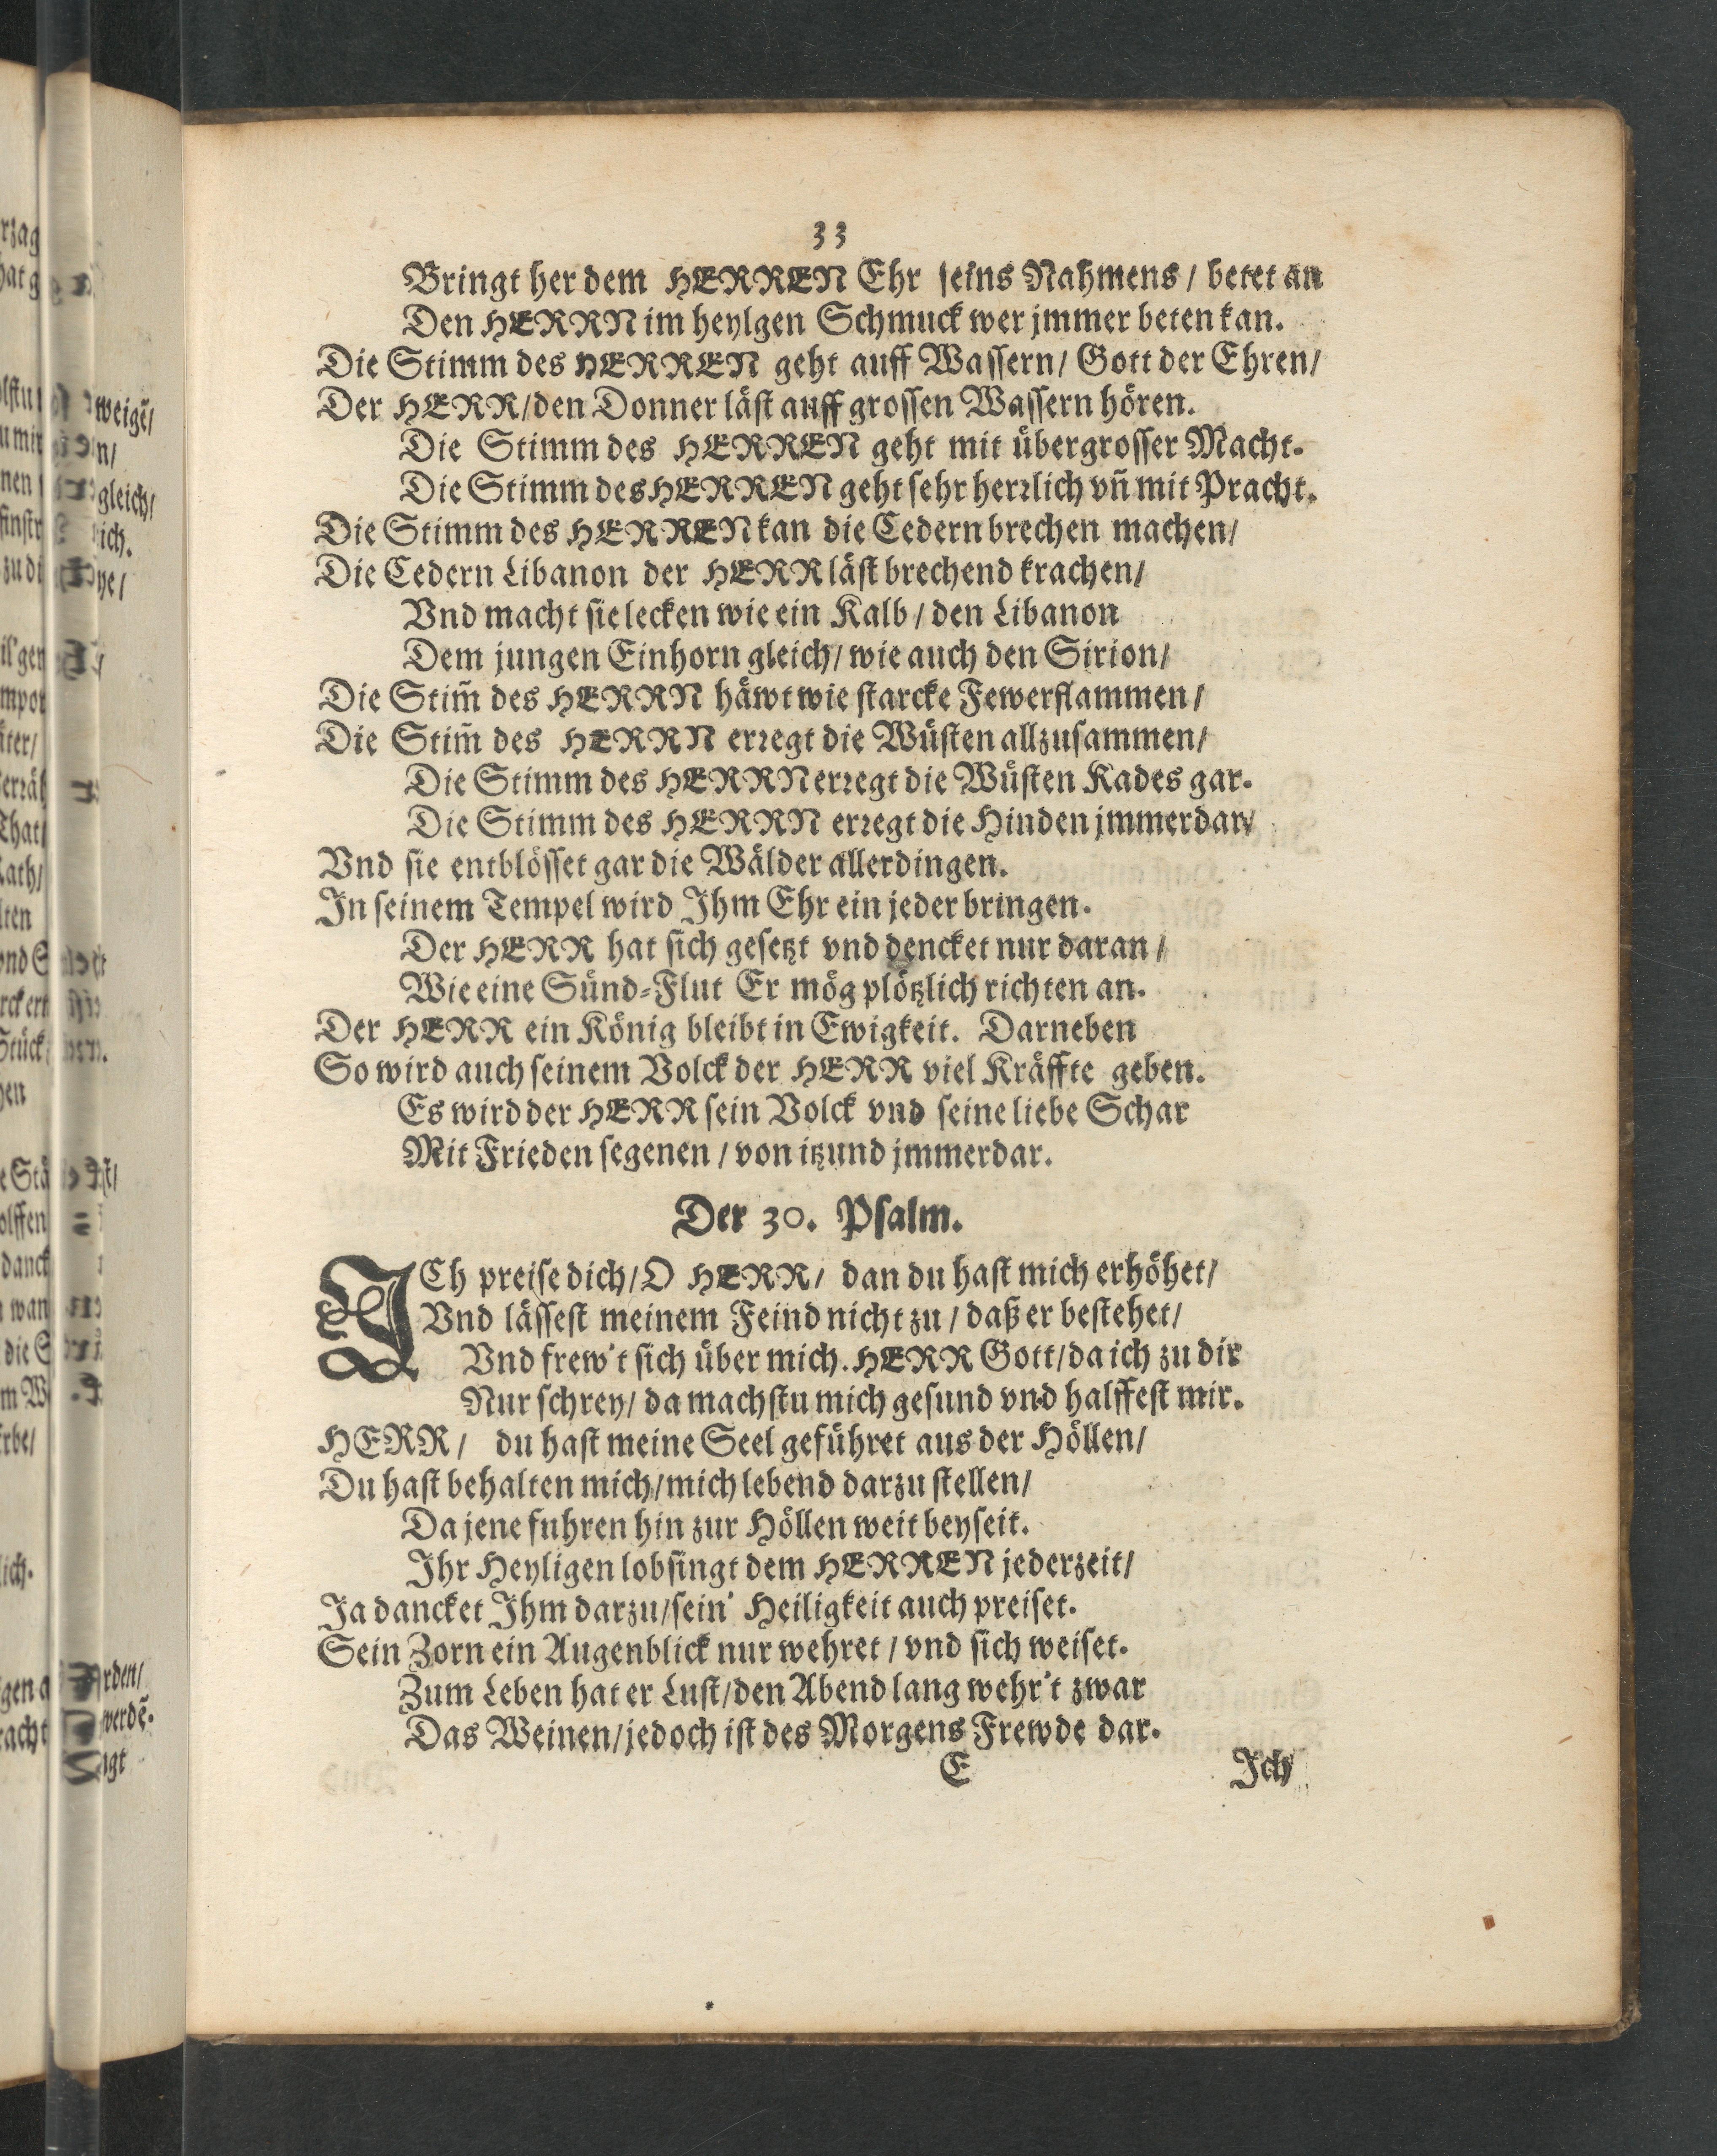 33
Bringt her dem HERREN Ehr seins Nahmens / betet an
Den HERRN im heylgen Schmuck wer jmmer beten kan.
Die Stimm des HERREN geht auff Wassern / Gott der Ehren /
Der HERR / den Donner läst auff grossen Wassern hören.
Die Stimm des HERREN geht mit übergrosser Macht.
Die Stimm des HERREN geht sehr herrlich vñ mit Pracht.
Die Stimm des HERREN kan die Cedern brechen machen /
Die Cedern Libanon der HERR läst brechend krachen /
Vnd macht sie lecken wie ein Kalb / den Libanon
Dem jungen Einhorn gleich / wie auch den Sirion /
Die Stim̃ des HERRN häwt wie starcke Fewerflammen /
Die Stim̃ des HERRN erregt die Wüsten allzusammen /
Die Stimm des HERRN erregt die Wüsten Kades gar.
Die Stimm des HERRN erregt die Hinden jmmerdar /
Vnd sie entblösset gar die Wälder allerdingen.
In seinem Tempel wird Ihm Ehr ein jeder bringen.
Der HERR hat sich gesetzt vnd dencket nur daran /
Wie eine Sünd-Flut Er mög plötzlich richten an.
Der HERR ein König bleibt in Ewigkeit. Darneben
So wird auch seinem Volck der HERR viel Kräffte geben.
Es wird der HERR sein Volck vnd seine liebe Schar
Mit Frieden segenen / von itzund jmmerdar.
Der 30. Psalm.
ICh preise dich / O HERR / dan du hast mich erhöhet /
Vnd lässest meinem Feind nicht zu / daß er bestehet /
Vnd frew't sich über mich. HERR Gott / da ich zu dir
Nur schrey / da machstu mich gesund vnd halffest mir.
HERR / du hast meine Seel geführet aus der Höllen /
Du hast behalten mich / mich lebend darzustellen /
Da jene fuhren hin zur Höllen weit beyseit.
Ihr Heyligen lobsingt dem HERREN jederzeit /
Ja dancket Ihm darzu / sein' Heiligkeit auch preiset.
Sein Zorn ein Augenblick nur wehret / vnd sich weiset.
Zum Leben hat er Lust / den Abend lang wehr't zwar
Das Weinen / jedoch ist des Morgens Frewde dar.
E Ich